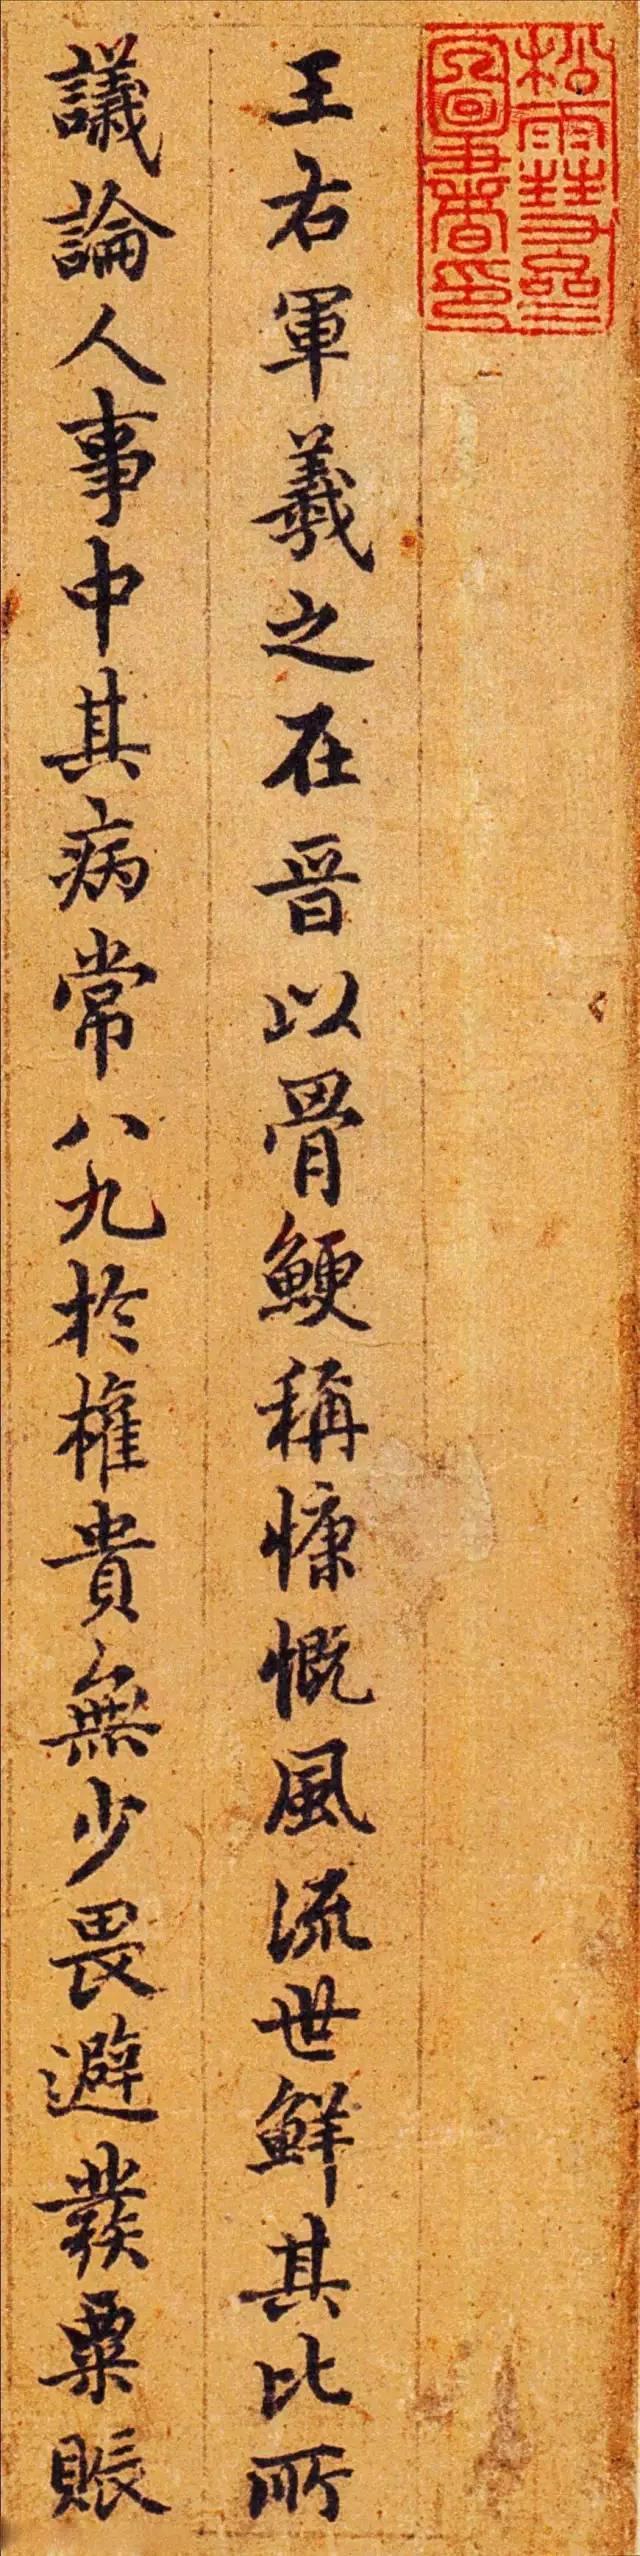 王右軍羲之在晋以骨鯁稱慷慨風流世鮮其比所
議論人事中其病常八九於權貴無少畏避發粟賑